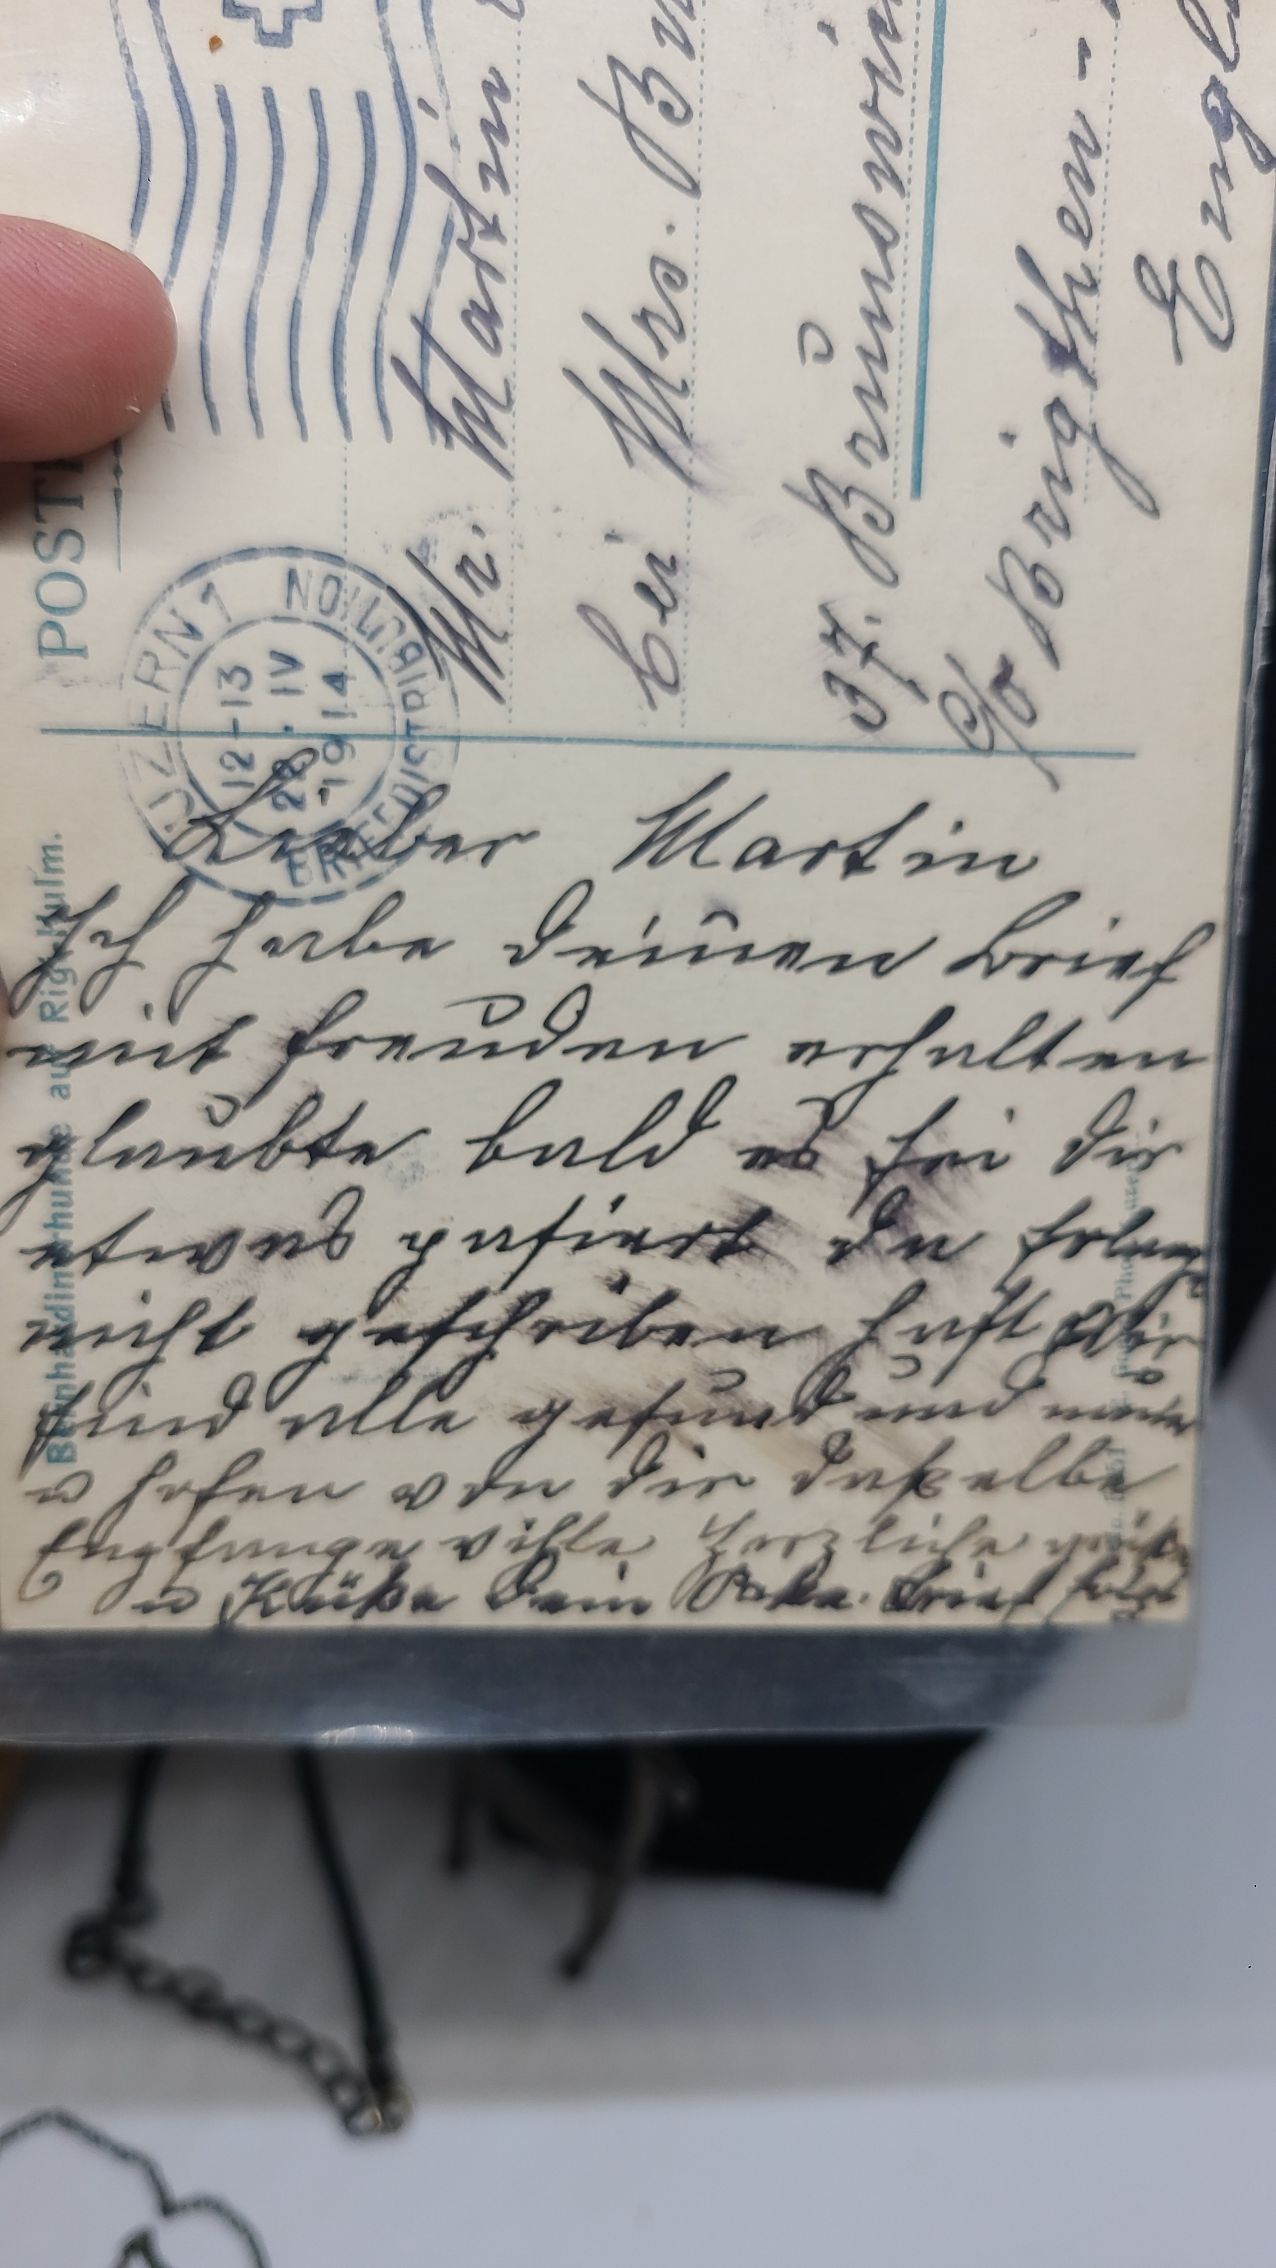 POST
LUZERN 1
12-13
22. IV
1914
BRIEFDISTRIBUTION
Mr. Martin
bei Mrs.
37. Brunswi
c/o Brigthen -
Engl
Lieber Martin
Ich habe deinen Brief
mit freuden erhalten
glaubte bald es sei dir
etwas pasiert da so lang
nicht geschriben hast Wir
sind alle gesund und
u hofen von dir daßelbe
Empfange viehle Herzliche grüße
u Küße Dein Brief folgt
Bernhardinerhunde auf Rigi-Kulm.